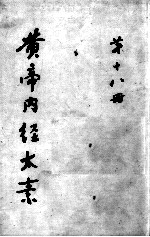 第十八冊
黄帝内經太素